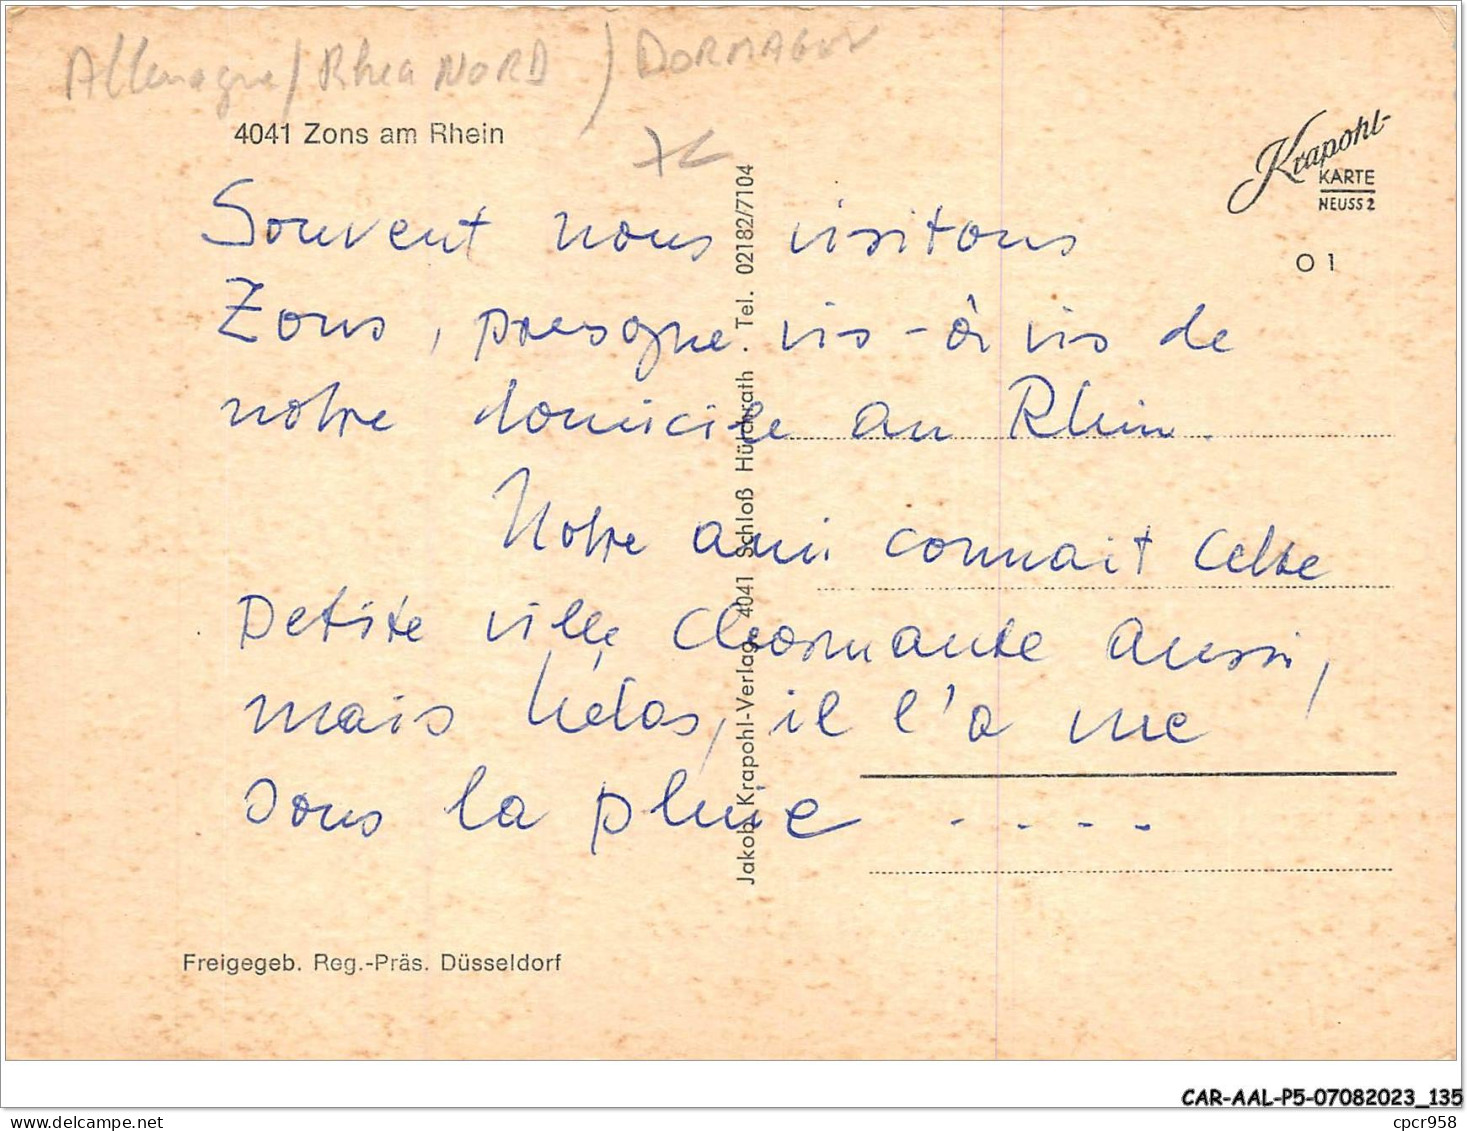 Allemagne / Rhea NORD / DORMAGEN
4041 Zons am Rhein
Krapohl-
KARTE
NEUSS 2
O 1
Souvent nous visitons
Zons, presque vis-à vis de
notre domicile au Rhin.
Notre ami connait cette
petite ville charmante aussi,
mais hélas, il l'a vue
sous la pluie ....
Jakob Krapohl-Verlag, 4041 Schloß Hülchrath . Tel. 02182/7104
Freigegeb. Reg.-Präs. Düsseldorf
CAR-AAL-P5-07082023_135
www.delcampe.net
cpcr958